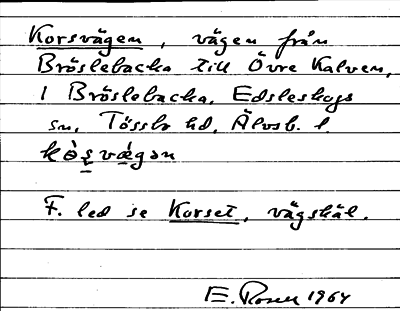 Korsvägen, vägen från
Bröslebacka till Övre Kalven,
i Bröslebacka, Edsleskogs
sn, Tössbo hd, Älvsb. l
kòʂvǽgən
F. led se Korset, vägskäl.
E. Rosen 1964